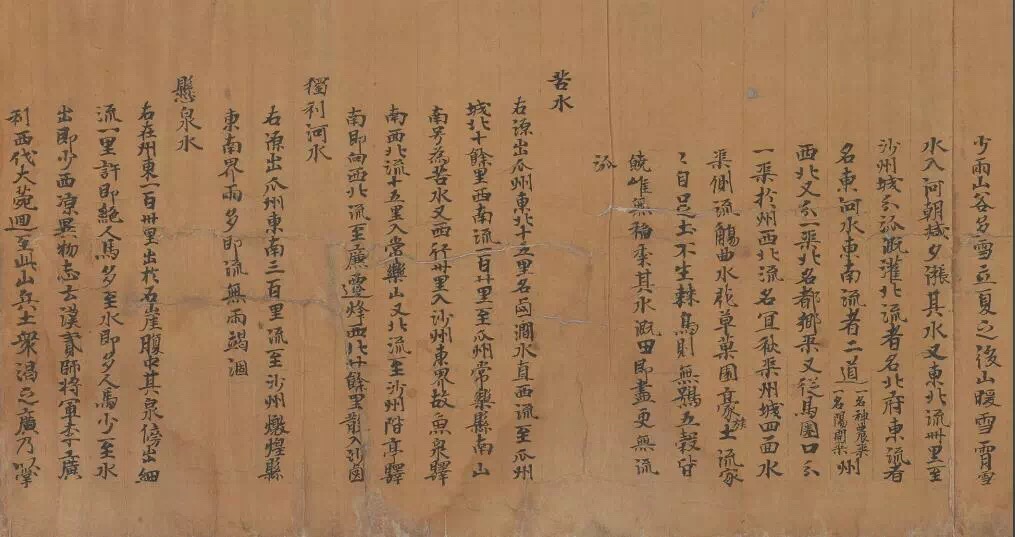 少雨山谷多雪立夏之後山暖雪霄雪
水入河朝減夕漲其水又東北流卌里至
沙州城分派溉灌北流者名北府東流者
名東河水東南流者二道一名神農渠一名陽開渠州
西北又分一渠北名都鄉渠又從馬圈口分
一渠於州西北流名宜秋渠州城四面水
渠側流觴曲水花草菓園豪族士流家
〻自足土不生棘鳥則無鴞五穀皆
饒唯無稻黍其水溉田即盡更無流
派
苦水
右源出瓜州東北十五里名鹵澗水直西流至瓜州
城北十餘里西南流一百廿里至瓜州常樂縣南山
南号為苦水又西行卅里入沙州東界故魚泉驛
南西北流十五里入常樂山又北流至沙州階亭驛
南即向西北流至廉遷烽西北廿餘里散入沙鹵
獨利河水
右源出瓜州東南三百里流至沙州燉煌縣
東南界雨多即流無雨竭涸
懸泉水
右在州東一百卅里出於石崖腹中其泉傍出細
流一里許即絕人馬多至水即多人馬少至水
出即少西涼異物志云漢貳師將軍李廣
利西伐大菀迴至此山兵士衆渴乏廣乃掌